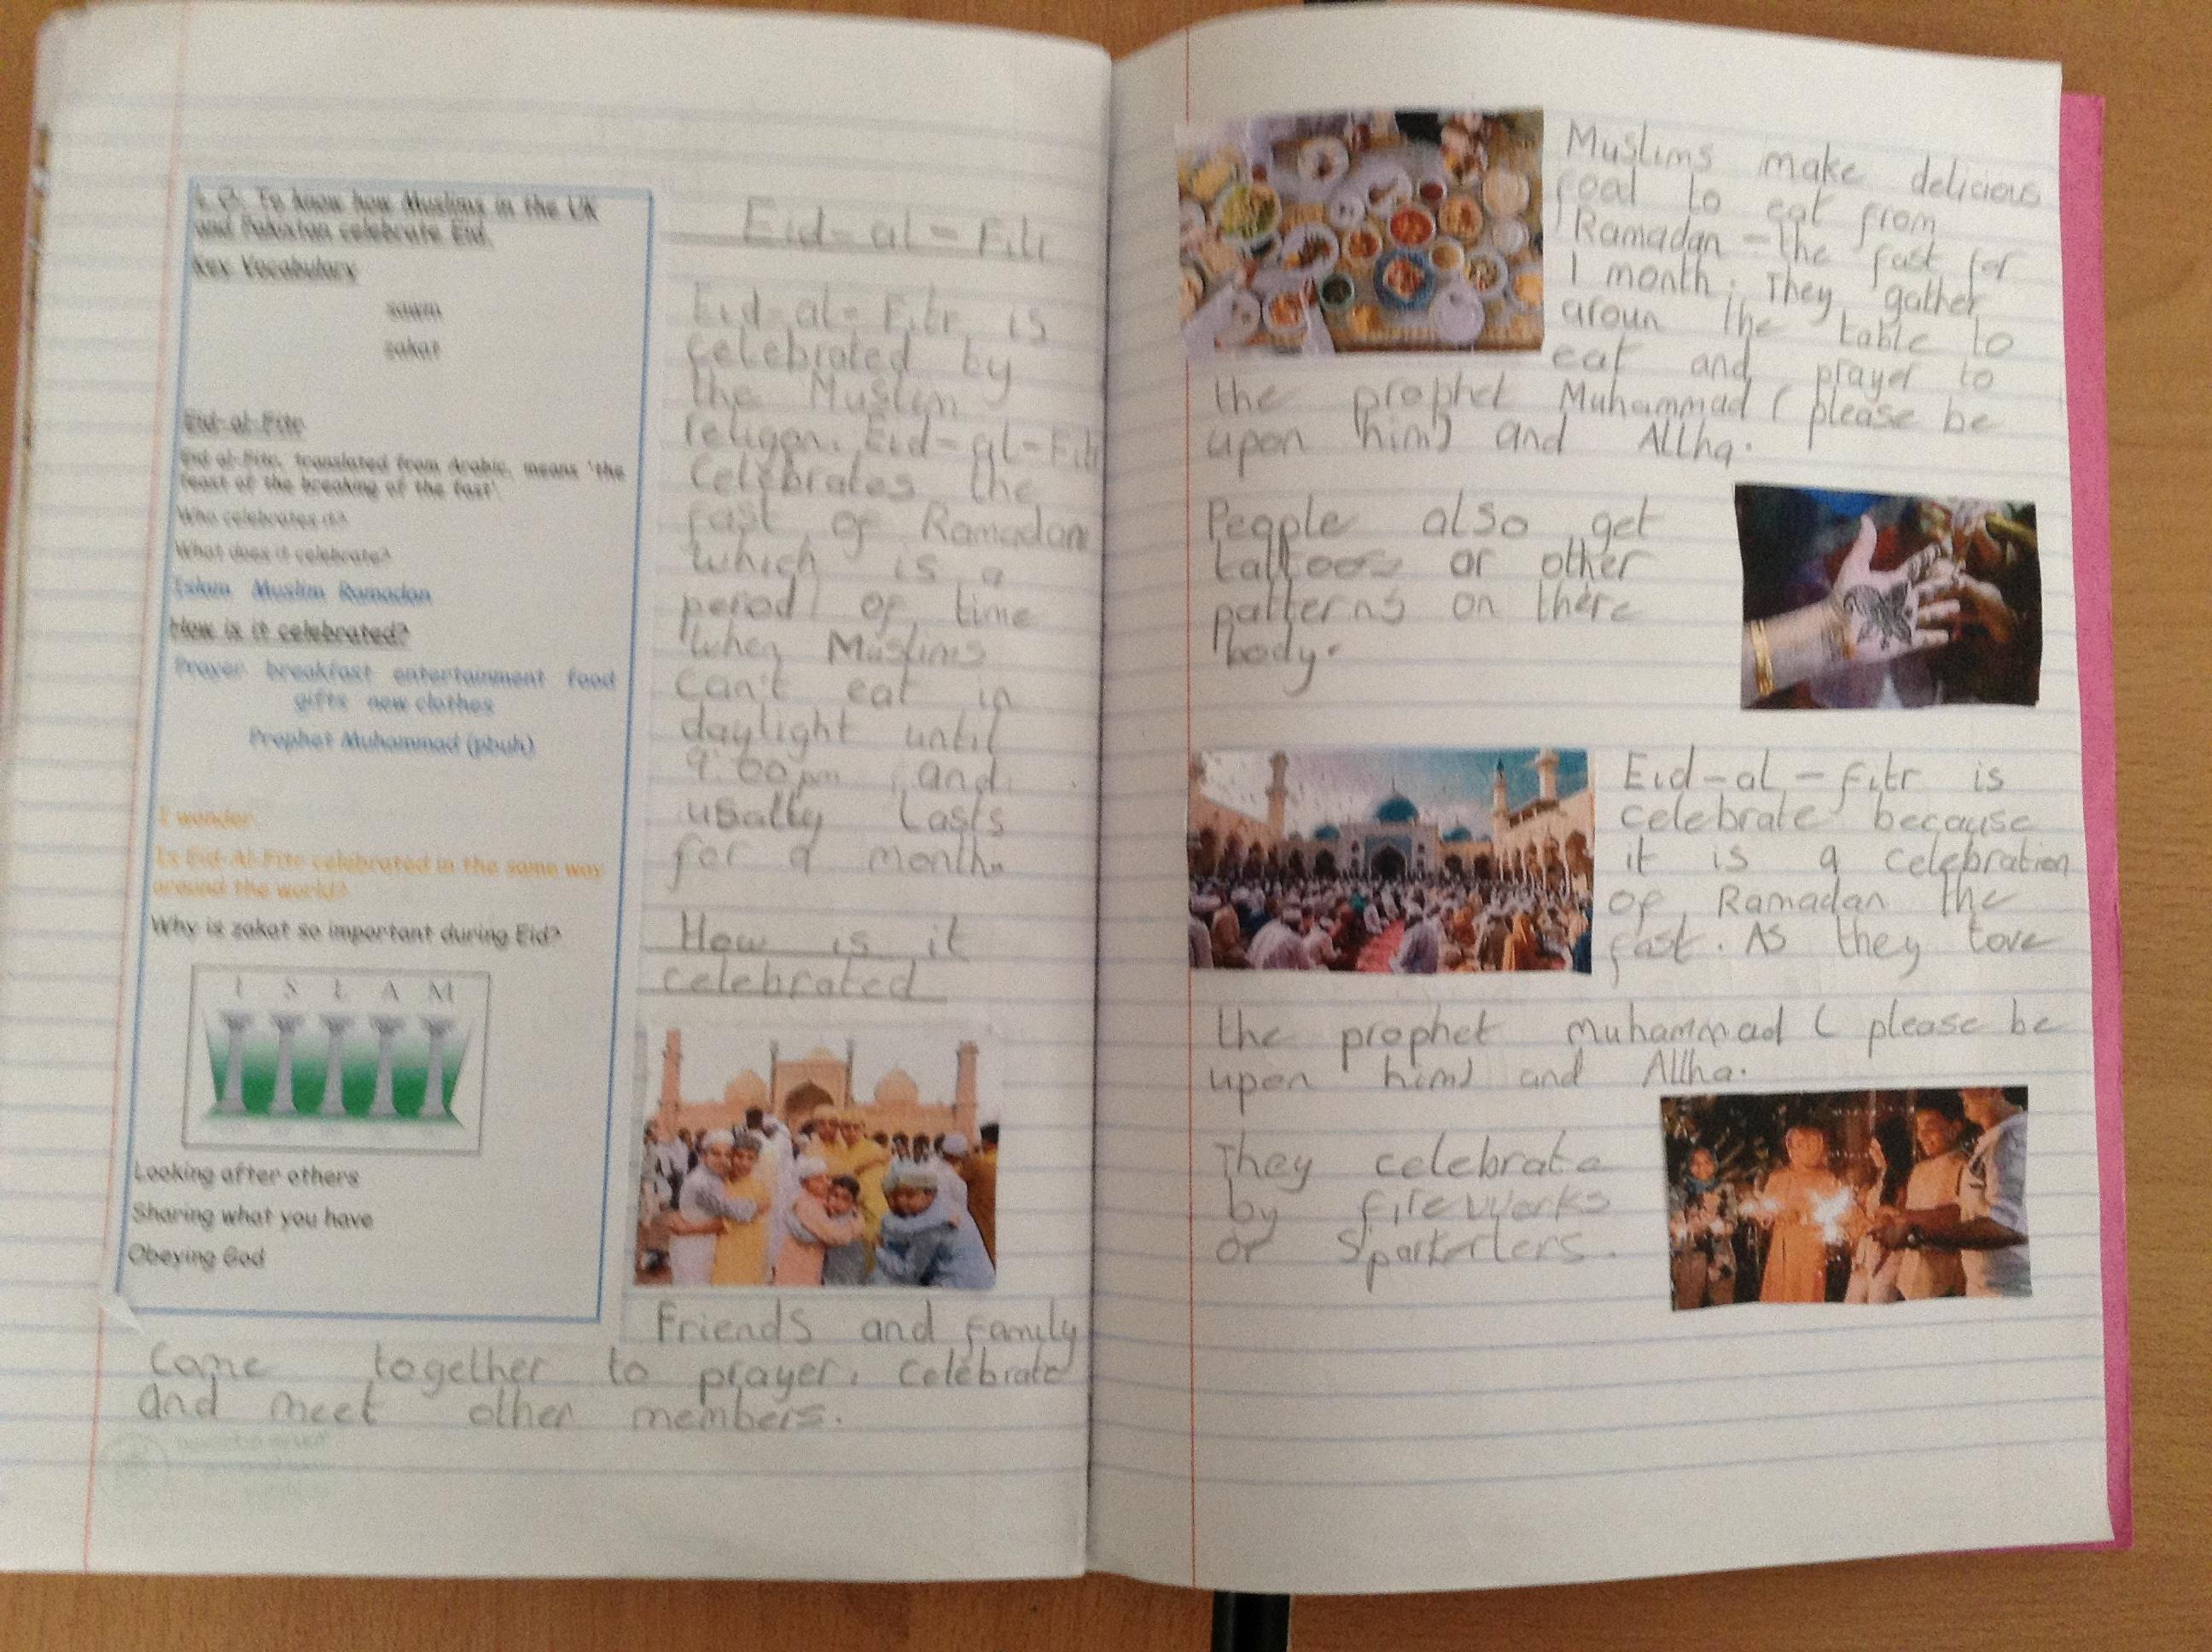 L.O. To know how Muslims in the UK
and Pakistan celebrate Eid.
Key Vocabulary
sawm
zakat
Eid-al-Fitr
Eid al-Fitr, translated from Arabic, means 'the
feast of the breaking of the fast'.
Who celebrates it?
What does it celebrate?
Islam Muslim Ramadan
How is it celebrated?
Prayer breakfast entertainment food
gifts new clothes
Prophet Muhammad (pbuh)
I wonder
Is Eid-Al-Fitr celebrated in the same way
around the world?
Why is zakat so important during Eid?
I S L A M
Looking after others
Sharing what you have
Obeying God
Eid-al-Fitr
Eid-al-Fitr is
celebrated by
the Muslim
religon. Eid-al-Fitr
Celebrates the
fast of Ramadan
which is a
period of time
when Muslims
can't eat in
daylight until
9:00pm and
usally lasts
for a month.
How is it
celebrated
Friends and family
come together to prayer, celebrate
and meet other members.
Muslims make delicious
foal to eat from
Ramadan - the fast for
1 month. They gather
aroun the table to
eat and prayer to
the prophet Muhammad (please be
upon him) and Allha.
People also get
tattoos or other
patterns on there
body.
Eid-al-fitr is
celebrate because
it is a celebration
of Ramadan the
fast. As they love
the prophet muhammad (please be
upon him) and Allha.
They celebrate
by fireworks
or